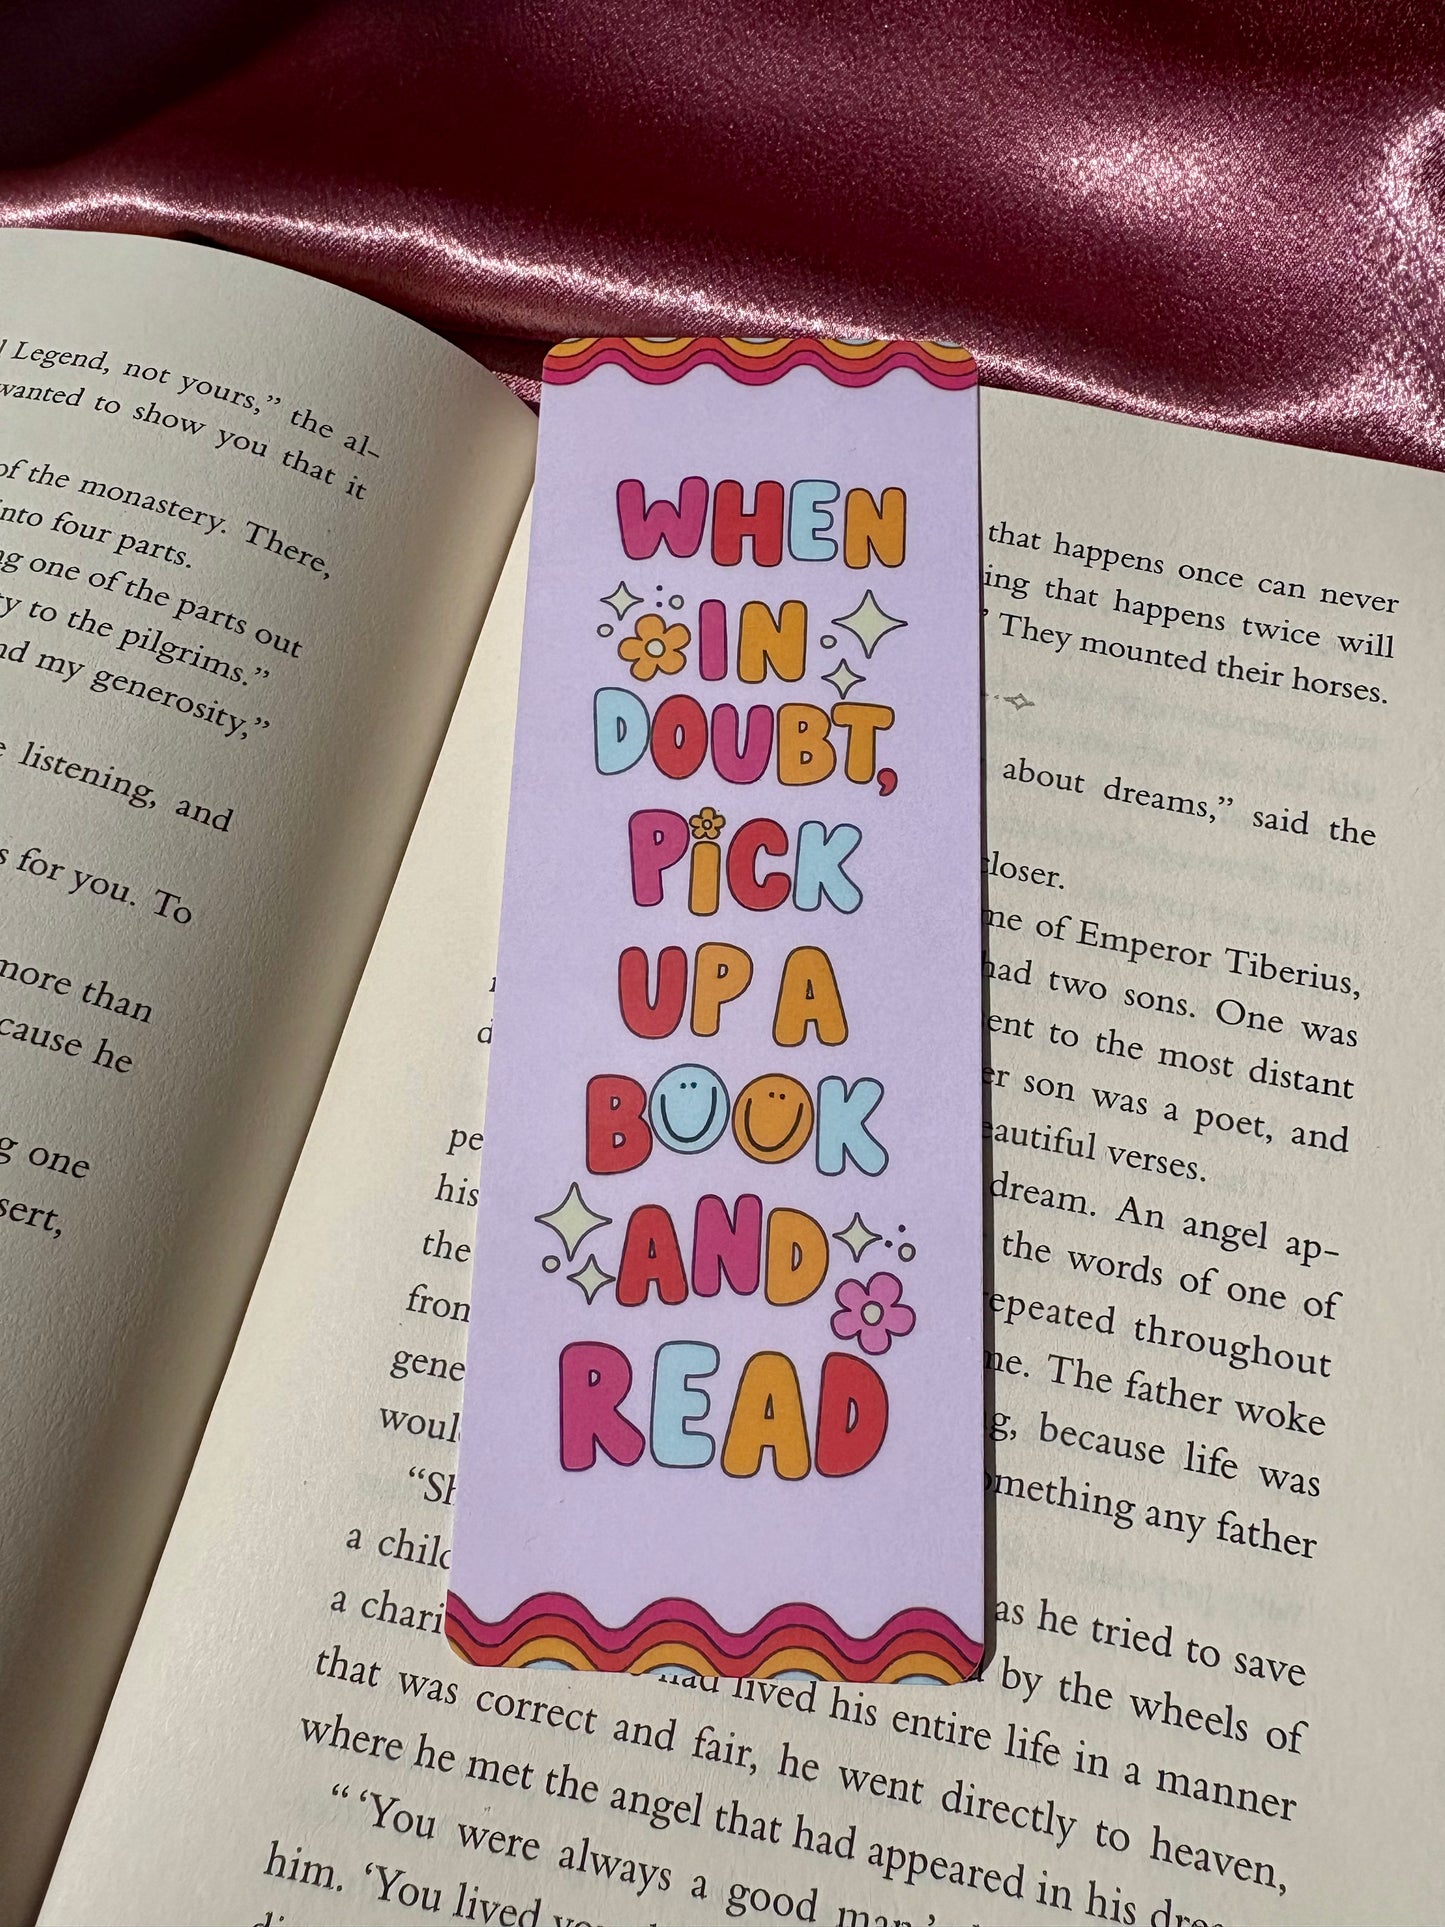 WHEN
IN
DOUBT,
PiCK
UP A
BOOK
AND
READ
Legend, not yours,” the al-
wanted to show you that it
of the monastery. There,
into four parts.
one of the parts out
to the pilgrims.”
my generosity,”
listening, and
for you. To
more than
cause he
one
that happens once can never
ing that happens twice will
They mounted their horses.
about dreams,” said the
closer.
of Emperor Tiberius,
had two sons. One was
to the most distant
son was a poet, and
verses.
dream. An angel ap-
the words of one of
throughout
The father woke
because life was
any father
as he tried to save
by the wheels of
his
the
“Sh
a
a
had lived his entire life in a manner
that was correct and fair, he went directly to heaven,
where he met the angel that had appeared in his
“ ‘You were always a good man.’
him. ‘You lived